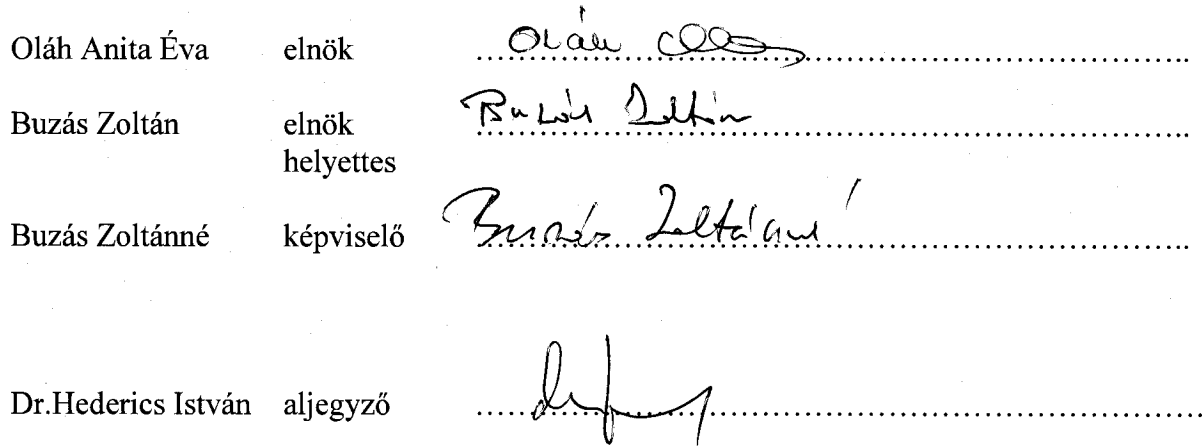 Oláh Anita Éva elnök Oláh ........................
Buzás Zoltán elnök Buzás Zoltán ........................
helyettes
Buzás Zoltánné képviselő Buzás Zoltánné ........................
Dr.Hederics István aljegyző ........................